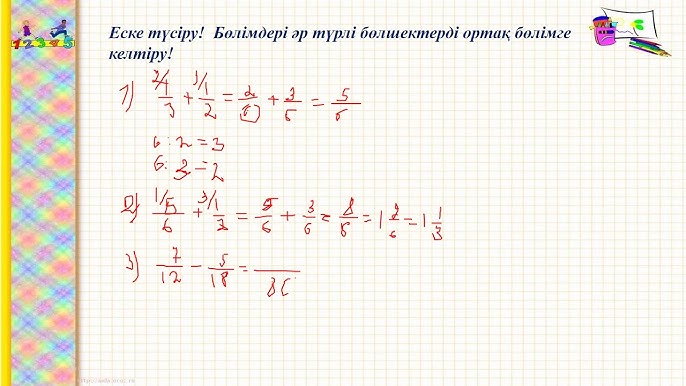 Еске түсіру! Бөлімдері әр түрлі бөлшектерді ортақ бөлімге
келтіру!
1) 2/1/3 + 3/1/2 = 2/6 + 3/6 = 5/6
6 : 2 = 3
6 : 3 = 2
2) 1/5/6 + 3/1/2 = 5/6 + 3/6 = 8/6 = 1 2/6 = 1 1/3
3) 7/12 − 5/18 =